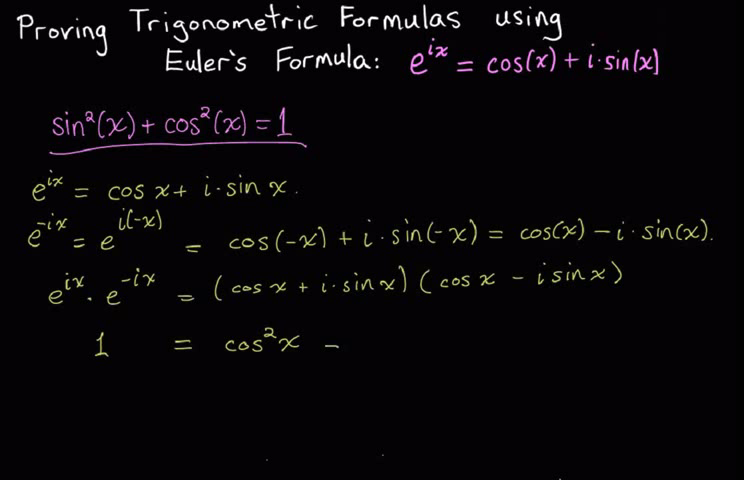 Proving Trigonometric Formulas using
Euler's Formula: e^{ix} = cos(x) + i·sin(x)
sin²(x) + cos²(x) = 1
e^{ix} = cos x + i·sin x.
e^{-ix} = e^{i(-x)} = cos(-x) + i·sin(-x) = cos(x) - i·sin(x).
e^{ix} · e^{-ix} = (cos x + i·sin x)(cos x - i sin x)
1 = cos²x -